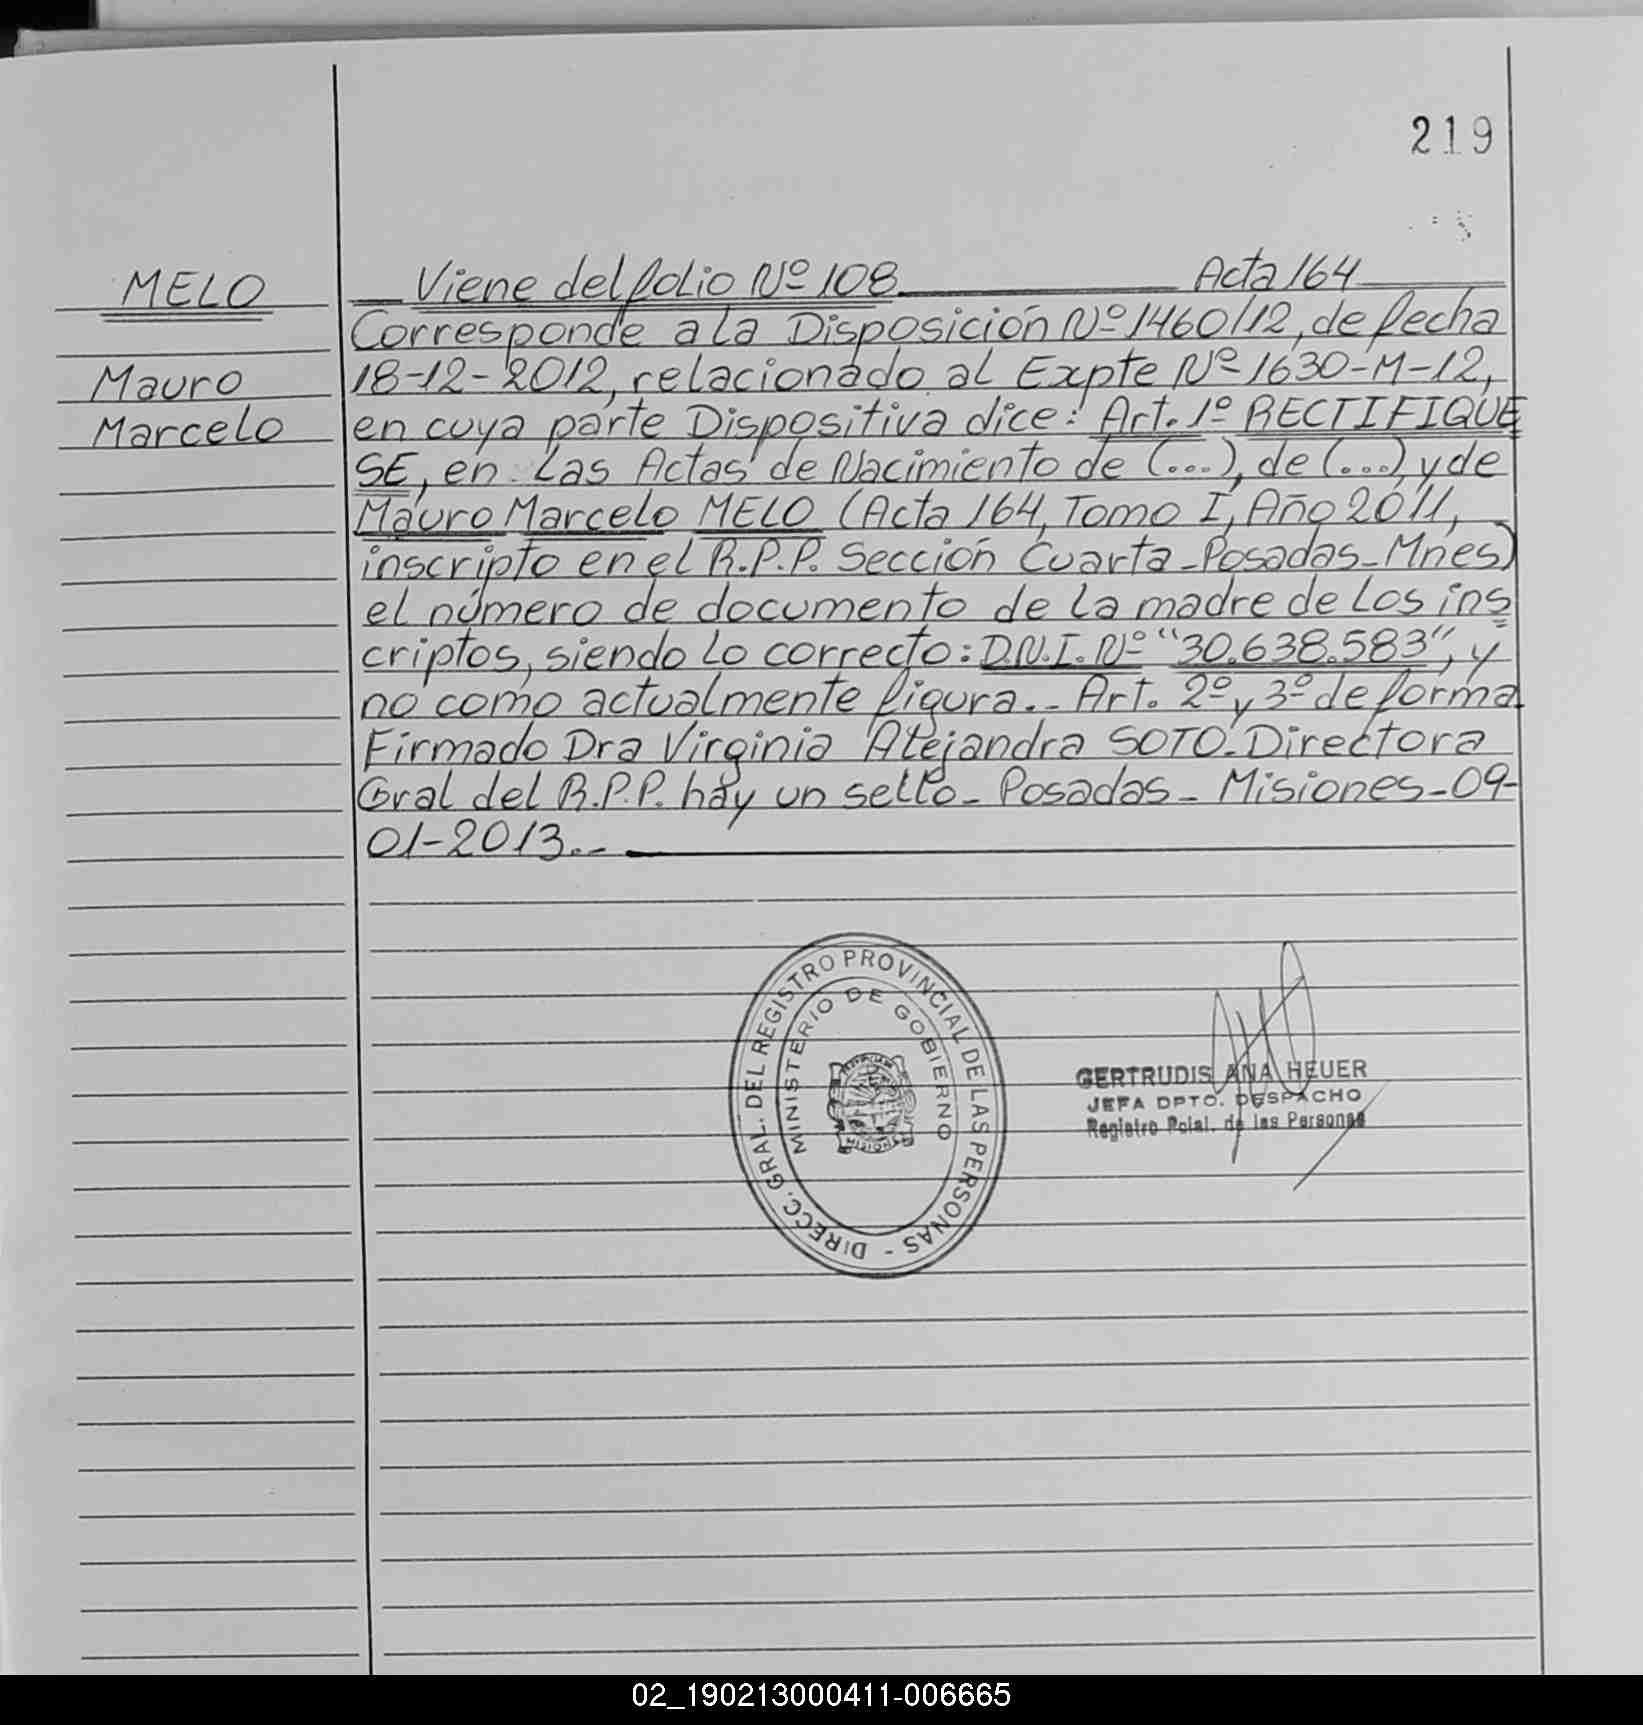 219
MELO
Viene del folio Nº 108 Acta 164
Corresponde a la Disposición Nº 1460/12, de fecha
Mauro
18-12-2012, relacionado al Expte Nº 1630-M-12,
Marcelo
en cuya parte Dispositiva dice: Art. 1º RECTIFIQUE
SE, en las Actas de Nacimiento de (...), de (...) y de
Mauro Marcelo MELO (Acta 164, Tomo I, Año 2011,
inscripto en el R.P.P. Sección Cuarta-Posadas-Mnes)
el número de documento de la madre de los ins
criptos, siendo lo correcto: D.N.I. Nº "30.638.583", y
no como actualmente figura.- Art. 2º y 3º de forma
Firmado Dra Virginia Alejandra SOTO-Directora
Gral del R.P.P. hay un sello- Posadas- Misiones-09-
01-2013.-
DIRECC. GRAL. DEL REGISTRO PROVINCIAL DE LAS PERSONAS -
MINISTERIO DE GOBIERNO
MISIONES
GERTRUDIS ANA HEUER
JEFA DPTO. DESPACHO
Registro Pcial. de las Personas
02_190213000411-006665